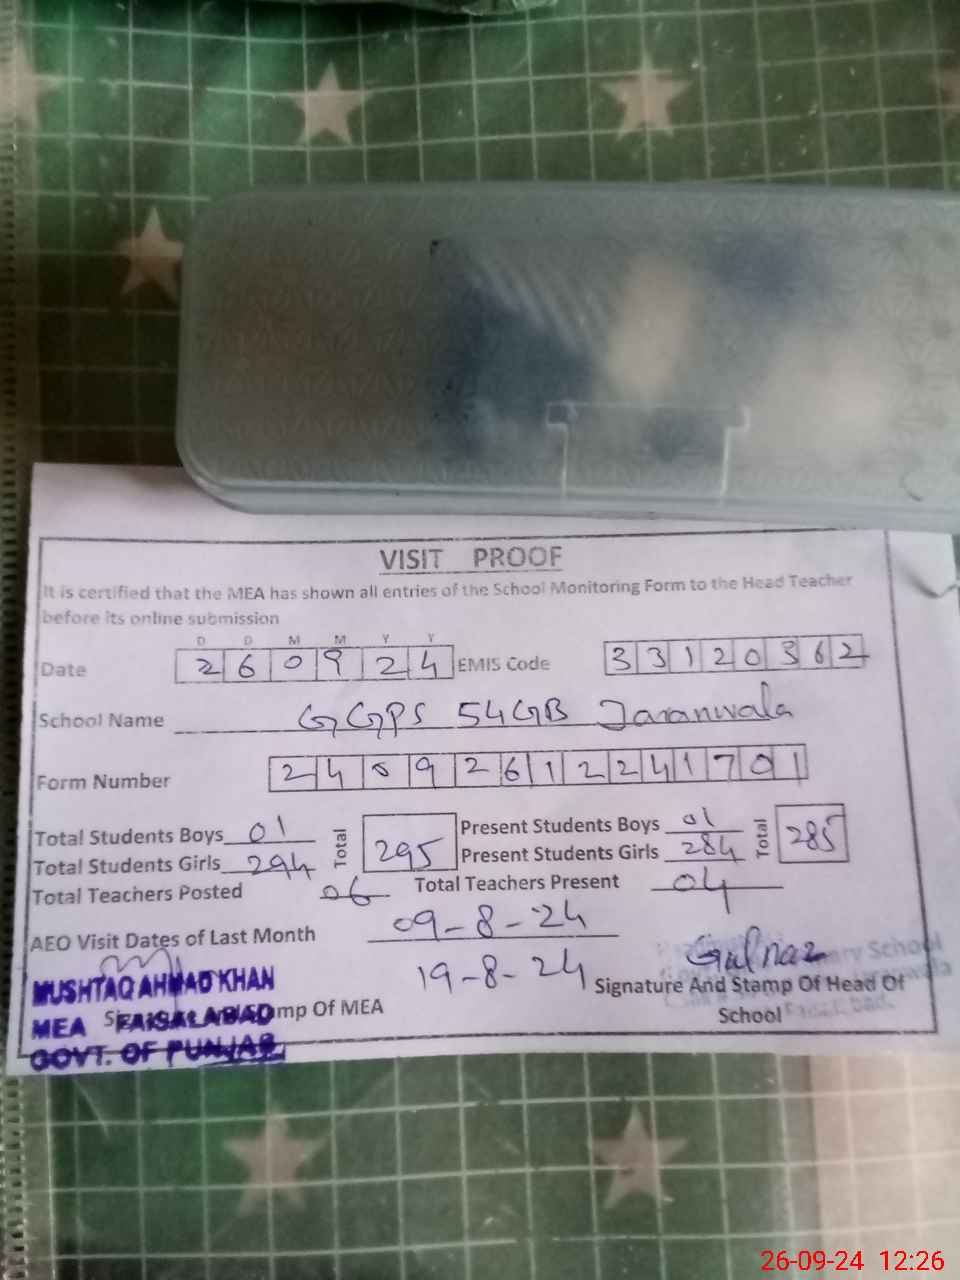 VISIT PROOF
It is certified that the MEA has shown all entries of the School Monitoring Form to the Head Teacher
before its online submission
D D M M Y Y
Date 2 6 0 9 2 4 EMIS Code 3 3 1 2 0 3 6 2
School Name GGPS 54GB Jaranwala
Form Number 2 4 0 9 2 6 1 2 2 4 1 7 0 1
Total Students Boys 01 Total 295 Present Students Boys 01 Total 285
Total Students Girls 294 Present Students Girls 284
Total Teachers Posted 06 Total Teachers Present 04
AEO Visit Dates of Last Month 09-8-24
19-8-24
Gulnaz
MUSHTAQ AHMAD KHAN
MEA FAISALABAD
GOVT. OF PUNJAB
Stamp Of MEA
Signature And Stamp Of Head Of
School
26-09-24 12:26